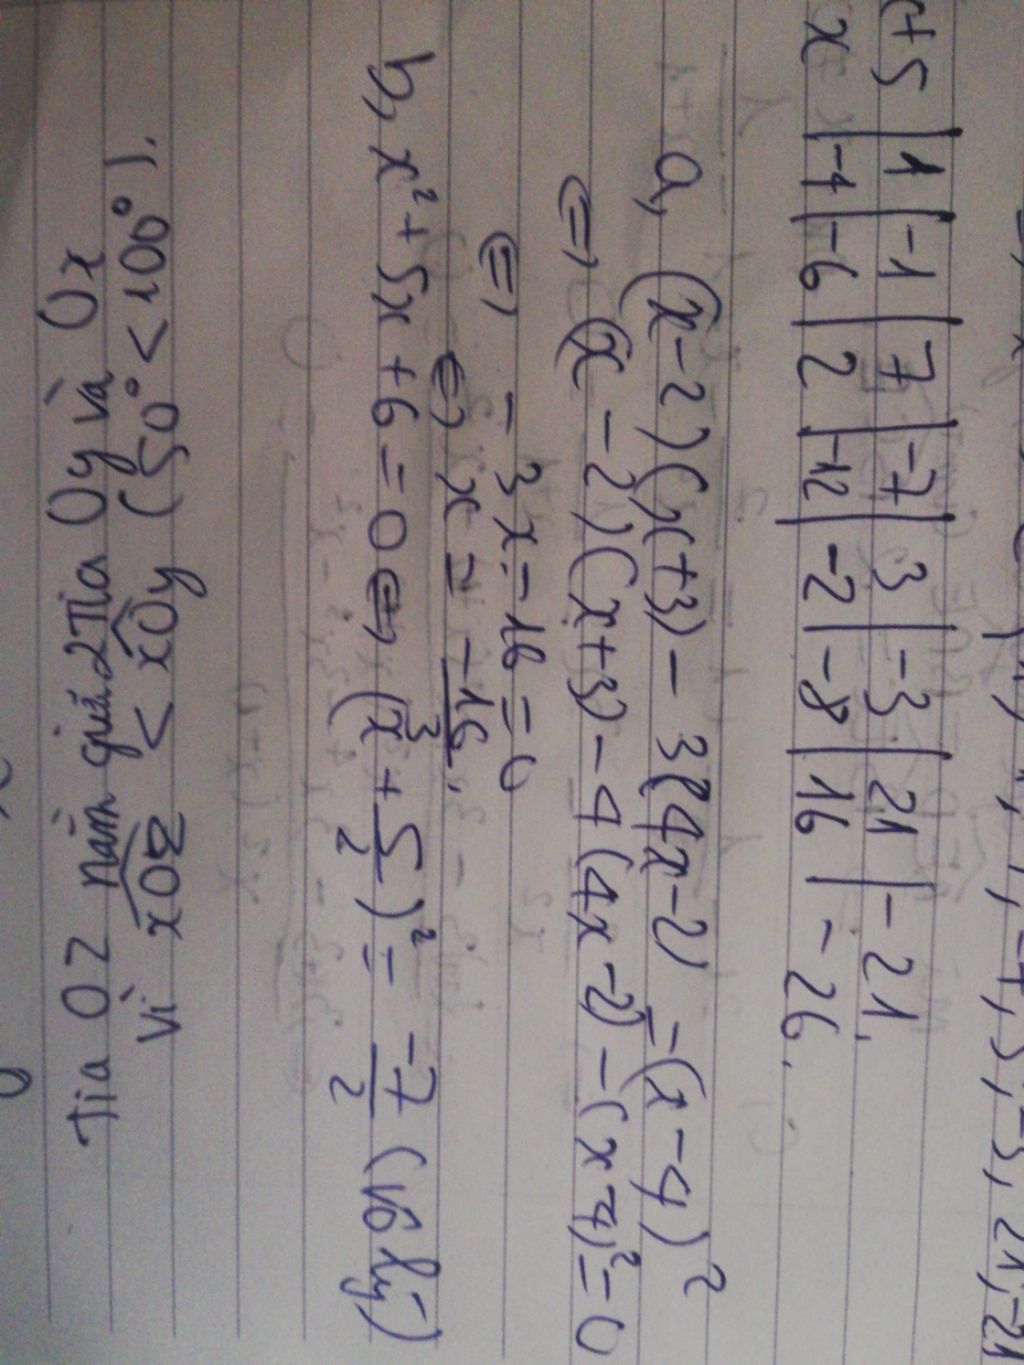 x+5 | 1 | -1 | 7 | -7 | 3 | -3 | 21 | -21.
x | -4 | -6 | 2 | -12 | -2 | -8 | 16 | -26.
a, (x-2)(x+3) - 3(4x-2) = (x-4)²
<=> (x-2)(x+3) - 4(4x-2) - (x-4)² = 0
<=> -3x-16=0
<=> x = -16/3.
b, x² + 5x + 6 = 0 <=> (x + 5/2)² = -7/2 (vô lý)
Tia OZ nằm giữa 2 Tia Oy và Ox
Vì xOz < xOy (50° < 100°).